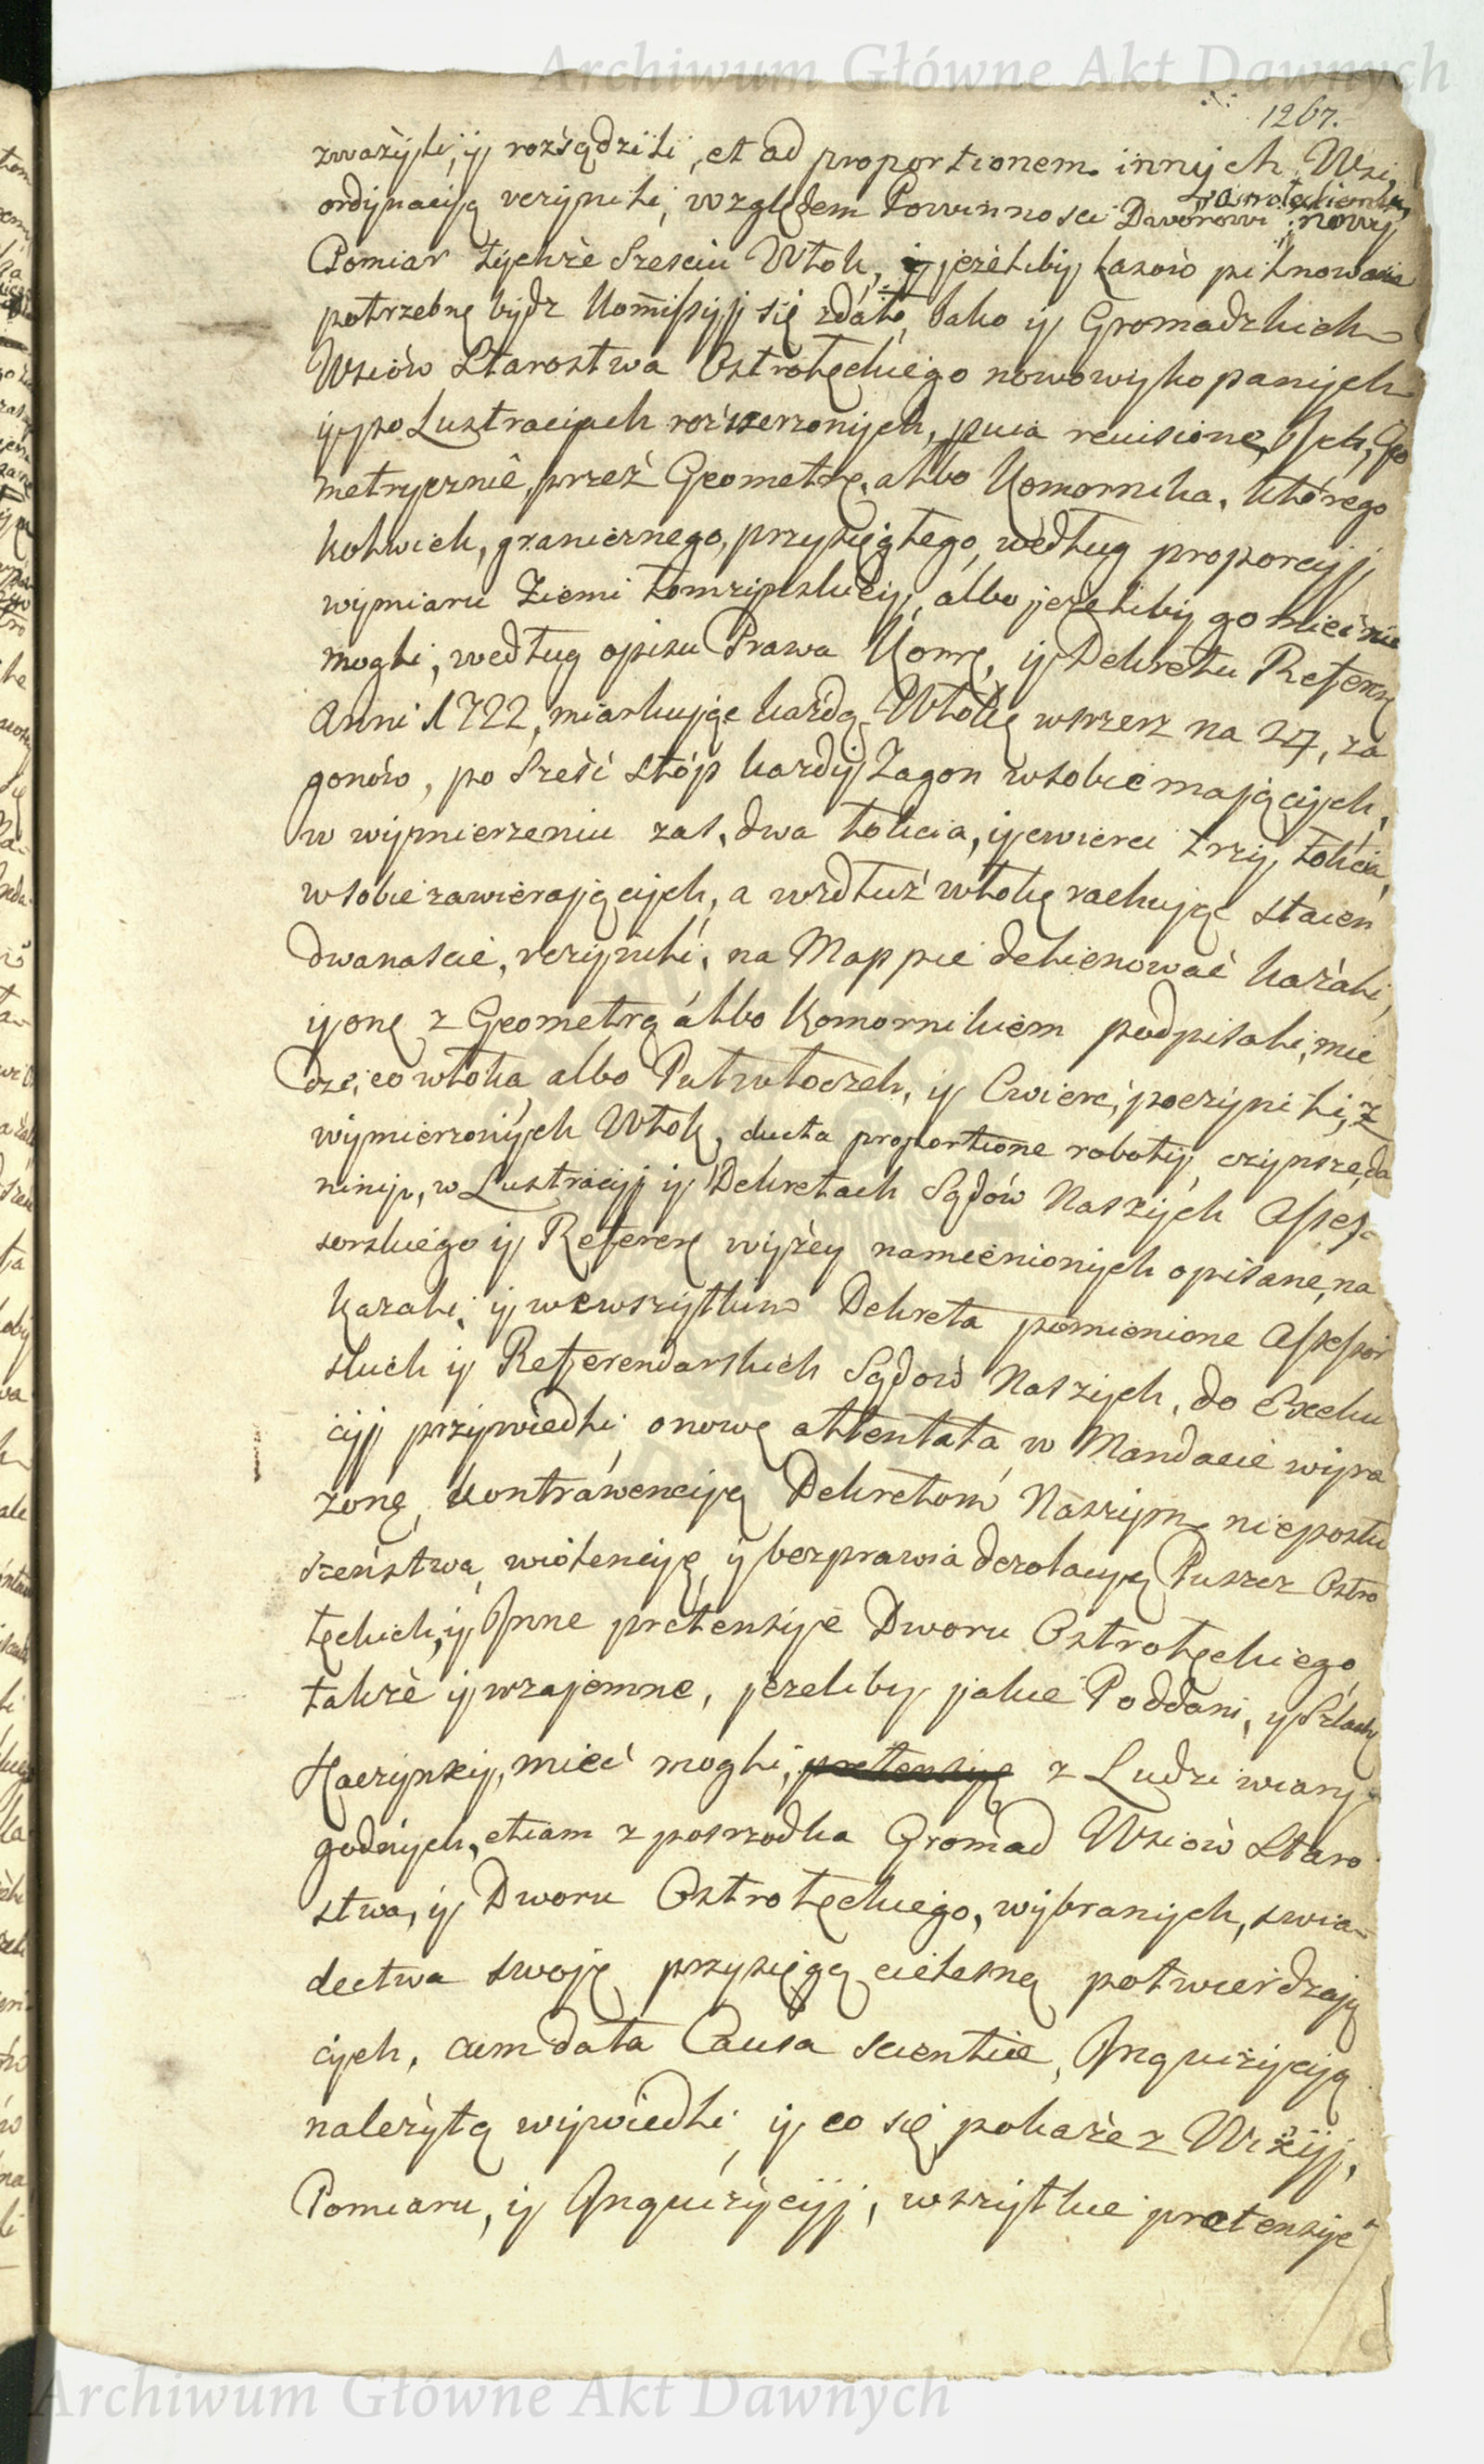 Archiwum Główne Akt Dawnych
1267.
zważyli, y rozsądzili, et ad proportionem innych Wsi,
ordynacyą uczynili, względem Powinności Dworowi nowy
Pomiar tychże Sześciu Włok, jeżeliby
potrzebne bydz Kommissyi się zdáło, Jako y Gromadzkich
Wsiów Starostwa Ostrołęckiego nowowykopanych
y po Lustracyach rozszerzonych, revisione, Geo
metrycznie, przez Geometrę, albo Komornika, którego
kolwiek, granicznego, przysięgłego, według proporcyi
wymiaru Ziemi Łomżyńskiey, albo jeżeliby go mieć nie
mogli, według opisu Prawa Kon̄rę, y Dekretu Referen
Anni 1722, miarkując każdą Włokę wszerz na 24, za
gonów, po Sześć stóp każdy Zagon w sobie mających,
w wymierzeniu zaś, dwa łokcia, y cwierci trzy, łokcia,
w sobie zawierających, a wzdłuż włokę rachując staień
dwanaście, uczynili, na Mappie delienować kazali,
y onę z Geometrą álbo Komornikiem podpisali,
co włoka albo Pułwłoczek, y Cwierć, poczynili, z
wymierzonych Włok, ducta proportione roboty, czynsze, da
niny, w Lustracyi y Dekretach Sądów Naszych Asses-
sorskiego y Referen wyżey namienionych opisane, na
kazali, y wewszytkim Dekreta pomienione Assessor
skich y Referendarskich Sądow Naszych, do Execu
cyi przywiedli, o nowe attentata w Mandacie wyra
zone, kontrawencyą Dekretom Naszym, nieposłu
szeństwa, wiolencye, y bezprawia dezolacyą Puszcz Ostro
łęckich, y Inne pretensye Dworu Ostrołęckiego
także y wzajemne, jezeliby jakie Poddani, y Szlach
Kaczynscy, mieć mogli, pretensye z Ludzi wiary
godnych, etiam z posrzodka Gromad Wsiów Staro
stwa, y Dworu Ostrołęckiego, wybranych, swia-
dectwa swoje przysięgą cielesną potwierdzają
cych, cum data Causa scientiæ, Inquizycyą
należytą wywiedli, y co się pokaże z Wizyi,
Pomiaru, y Inquizycyi, wszytkie pretensye
Archiwum Główne Akt Dawnych